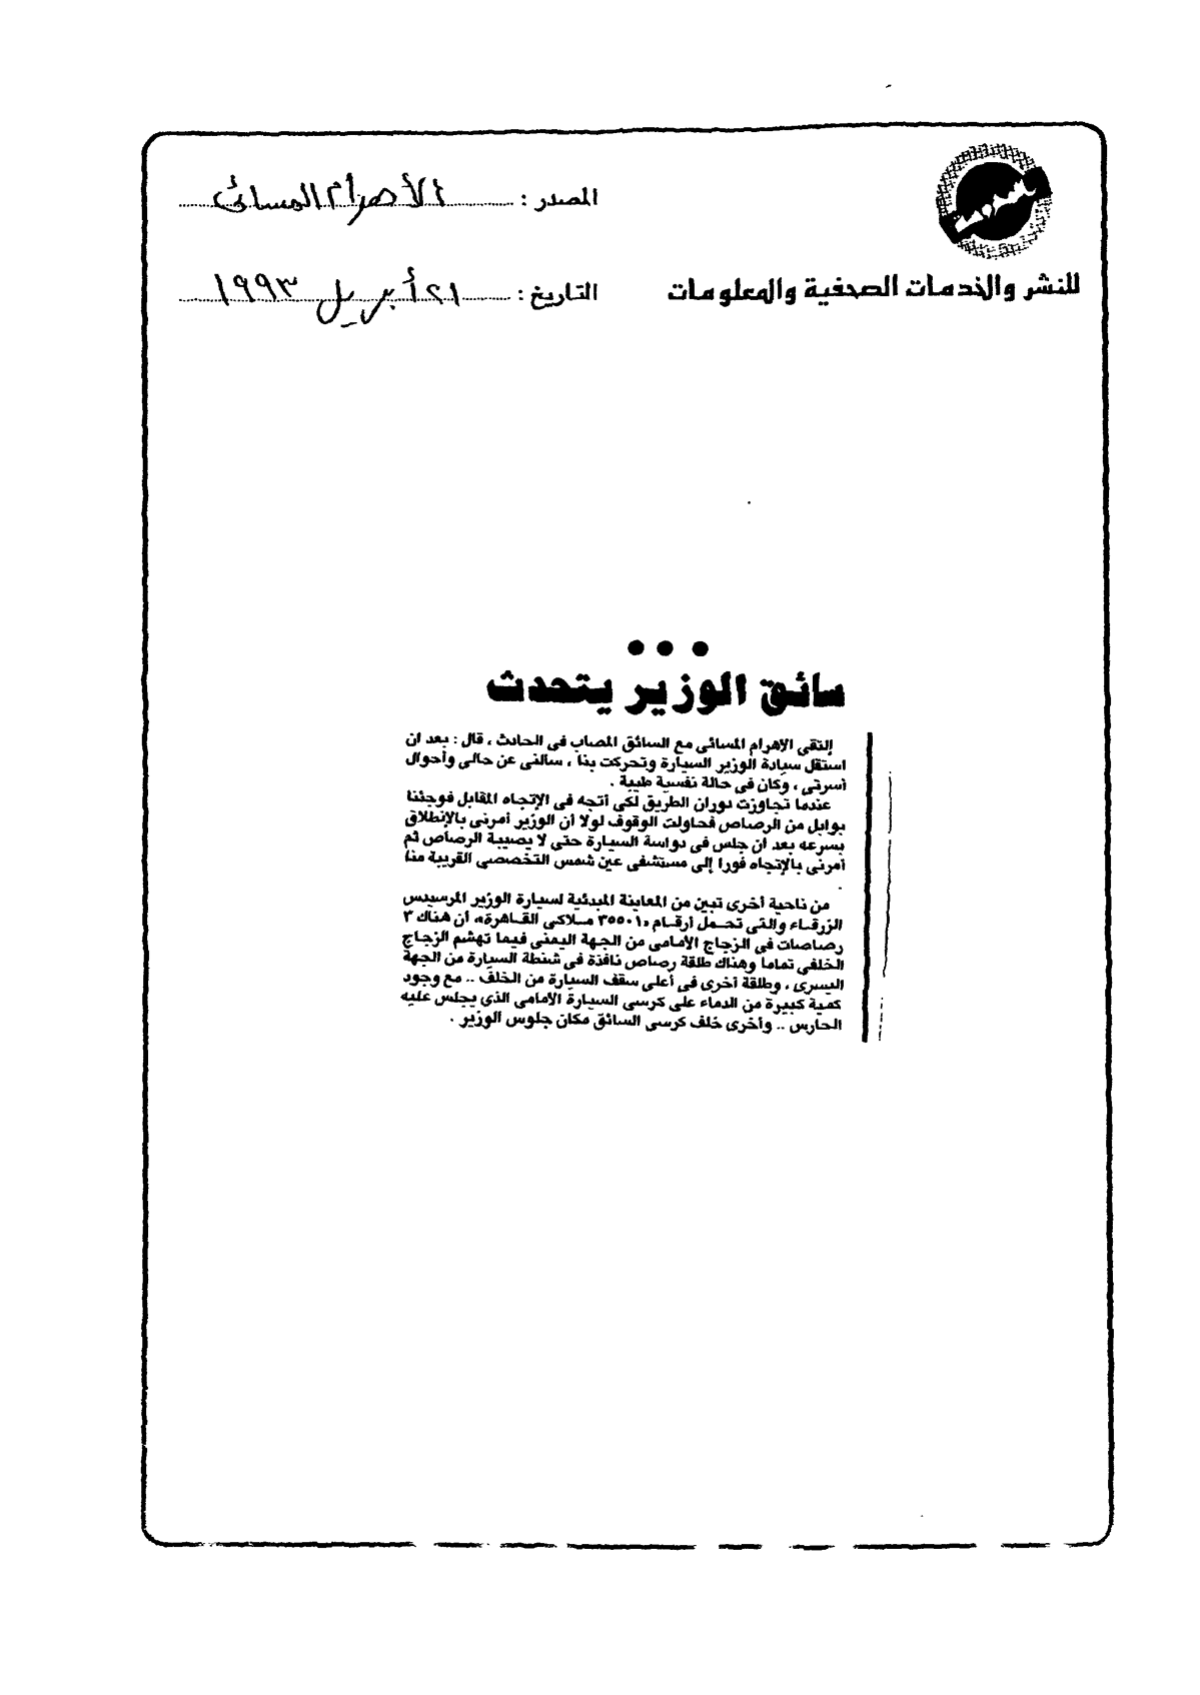 المصدر : الأهرام المسائى
للنشر والخدمات الصحفية والمعلومات
التاريخ : ٢١ أبريل ١٩٩٣
سائق الوزير يتحدث
إلتقى الاهرام المسائى مع السائق المصاب فى الحادث ، قال : بعد ان
استقل سيادة الوزير السيارة وتحركت بنا ، سالنى عن حالى وأحوال
أسرتى ، وكان فى حالة نفسية طيبة .
عندما تجاوزت دوران الطريق لكى أتجه فى الإتجاه المقابل فوجئنا
بوابل من الرصاص فحاولت الوقوف لولا أن الوزير أمرنى بالإنطلاق
بسرعه بعد ان جلس فى دواسة السيارة حتى لا يصيبة الرصاص ثم
أمرنى بالإتجاه فورا إلى مستشفى عين شمس التخصصى القريبة منا
.
من ناحية أخرى تبين من المعاينة المبدئية لسيارة الوزير المرسيدس
الزرقاء والتى تحمل أرقام «٣٥٥٠١ ملاكى القاهرة» أن هناك ٣
رصاصات فى الزجاج الأمامى من الجهة اليمنى فيما تهشم الزجاج
الخلفى تماما وهناك طلقة رصاص نافذة فى شنطة السيارة من الجهة
اليسرى ، وطلقة أخرى فى أعلى سقف السيارة من الخلف .. مع وجود
كمية كبيرة من الدماء على كرسى السيارة الأمامى الذى يجلس عليه
الحارس .. وأخرى خلف كرسى السائق مكان جلوس الوزير .